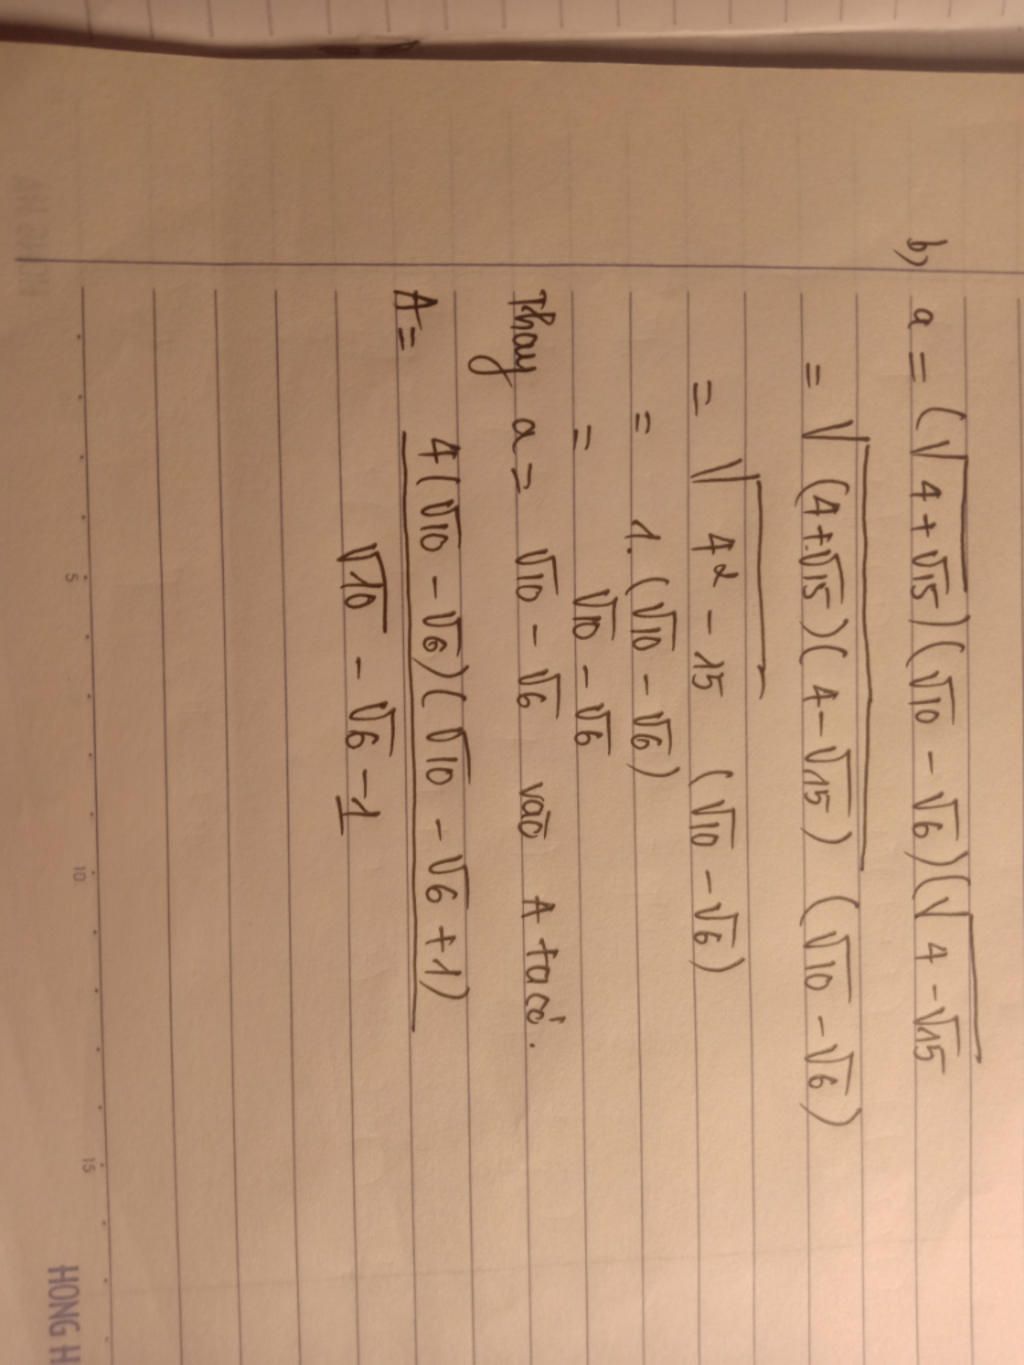 b) a = (√(4+√15))(√10 − √6)(√(4−√15)
= √((4+√15)(4−√15)) (√10 − √6)
= √(4² − 15) (√10 − √6)
= 1.(√10 − √6)
= √10 − √6
Thay a = √10 − √6 vào A ta có.
A = 4(√10 − √6)(√10 − √6 + 1)
√10 − √6 − 1
5
10
15
HONG H